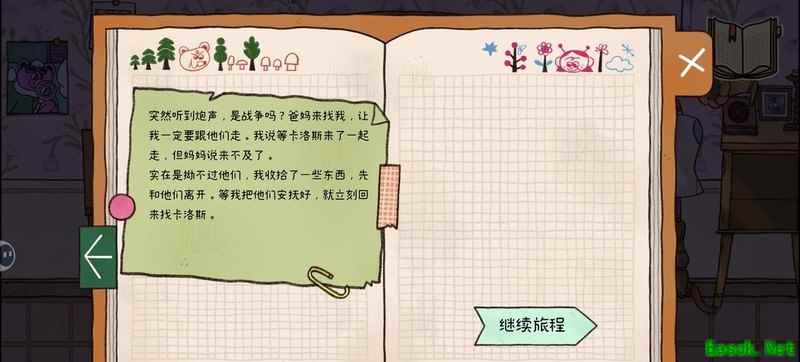 突然听到炮声，是战争吗？爸妈来找我，让
我一定要跟他们走。我说等卡洛斯来了一起
走，但妈妈说来不及了。
实在是拗不过他们，我收拾了一些东西，先
和他们离开。等我把他们安抚好，就立刻回
来找卡洛斯。
继续旅程